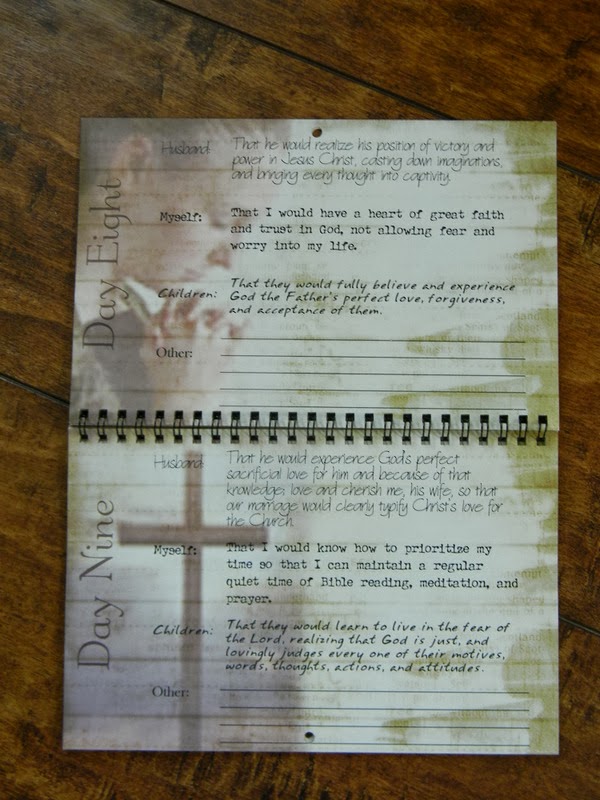 Day Eight
Husband
That he would realize his position of victory and
power in Jesus Christ, casting down imaginations,
and bringing every thought into captivity.
Myself:
That I would have a heart of great faith
and trust in God, not allowing fear and
worry into my life.
Children:
That they would fully believe and experience
God the Father's perfect love, forgiveness,
and acceptance of them.
Other:
Day Nine
Husband
That he would experience God's perfect
sacrificial love for him and because of that
knowledge; love and cherish me, his wife, so that
our marriage would clearly typify Christ's love for
the Church.
Myself:
That I would know how to prioritize my
time so that I can maintain a regular
quiet time of Bible reading, meditation, and
prayer.
Children:
That they would learn to live in the fear of
the Lord, realizing that God is just, and
lovingly judges every one of their motives,
words, thoughts, actions, and attitudes.
Other: